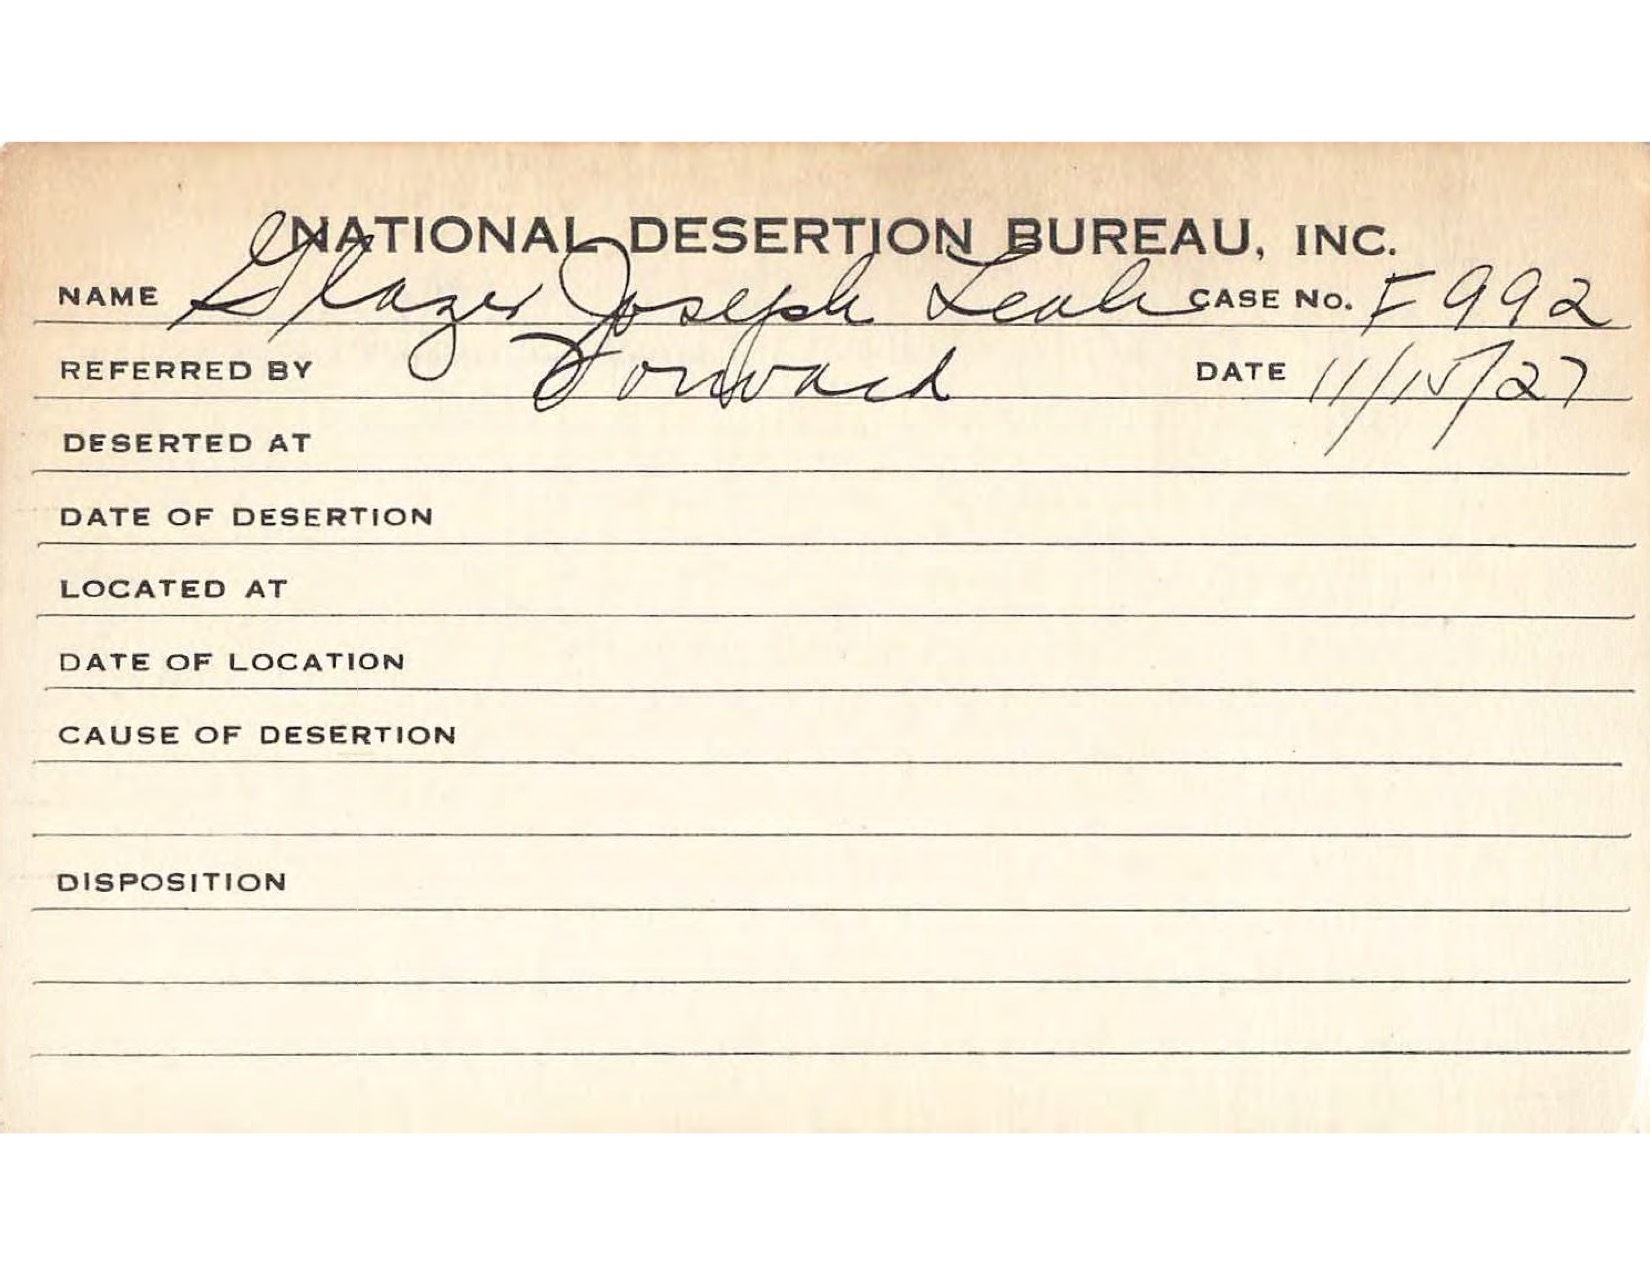 NATIONAL DESERTION BUREAU, INC.
NAME Glazer Joseph Leah CASE No. F992
REFERRED BY Forward DATE 11/15/27
DESERTED AT
DATE OF DESERTION
LOCATED AT
DATE OF LOCATION
CAUSE OF DESERTION
DISPOSITION